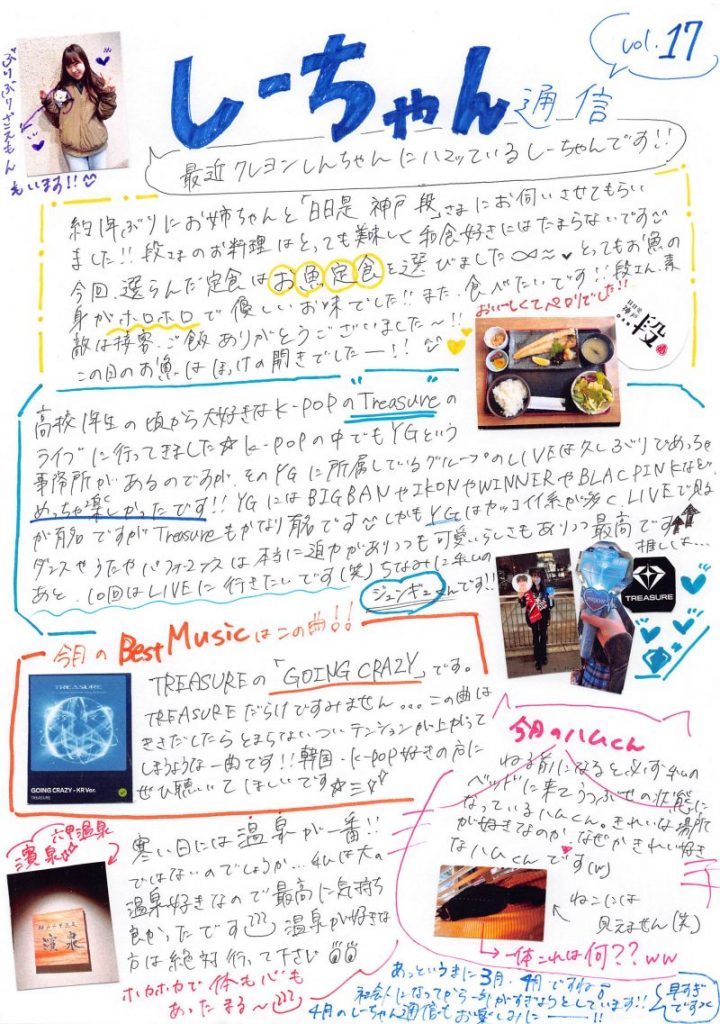 vol.17
しーちゃん通信
ぶりぶりざえもん
もいます!!
最近クレヨンしんちゃんにハマッているしーちゃんです!!
約1年ぶりにお姉ちゃんと「日日是 神戸 段」さまにお伺いさせてもらい
ました!! 段さまのお料理はとっても美しく和食好きにはたまらないです
今回、選らんだ定食はお魚定食を選びました とってもお魚の
身がホロホロで優しいお味でした!! また、食べたいです!! 段さん、素
敵な接客、ご飯ありがとうございました〜!!
この日のお魚はほっけの開きでしたー!!
おいしくてペロリでした!!
日日是
神戸
段
高校1年生の頃から大好きなK-POPの"Treasure"の
ライブに行ってきました☆ K-POPの中でもYGという
事務所があるのですが、そのYGに所属しているグループのLIVEは久しぶりでめっちゃ
めっちゃ楽しかったです!! YGにはBIGBANやIKONやWINNERやBLACPINKなど
が有名ですがTreasureもかなり有名です しかもYGはカッコイイ系が多く、LIVEで見る
ダンスやうたやパフォーマンスは本当に迫力がありつつも可愛いらしさもありつつ最高です
あと、10回はLIVEに行きたいです(笑) ちなみに私の
推しくん…
ジュンギュくんです!!
TREASURE
今月のBest Musicはこの曲!!
TREASURE
GOING CRAZY - KR Ver.
TREASURE
TREASUREの「GOING CRAZY」です。
TREASUREだらけですみません...この曲は
ききだしたらとまらないついテンションが上がって
しまうような一曲です!! 韓国・K-POP好きの方に
ぜひ聴いてほしいです☆ミ☆
今月のハムくん
ねる前になると必ず私の
ベッドに来てうつぶせの状態に
なっているハムくん。きれいな場所
が好きなのか、なぜかきれい好き
なハムくんです(w)
ねこには
見えません(笑)
→一体これは何??ww
六甲温泉
濱泉
濱泉
寒い日には温泉が一番!!
ではないのでしょうか...私は大の
温泉好きなので最高に気持ち
良かったです 温泉が好きな
方は絶対行って下さい
ホカホカで体も心も
あったまる〜
あっというまに3月・4月ですね
社会人になってから一年がすぎようとしています!!
4月のしーちゃん通信もお楽しみにー!!
早すぎ
ですっ